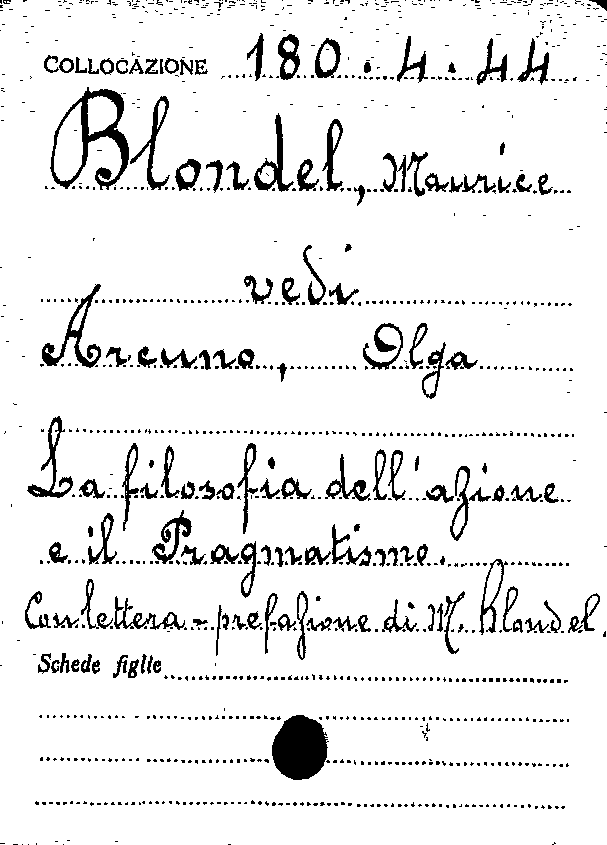 COLLOCAZIONE 180.4.44
Blondel, Maurice
vedi
Arcuno, Olga
La filosofia dell'azione
e il Pragmatismo.
Con lettera-prefazione di M. Blondel.
Schede figlie